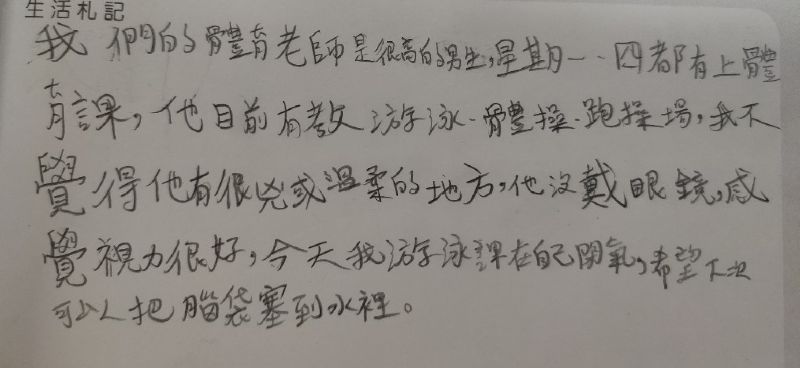 生活札記
我們的體育老師是很高的男生,星期一、四都有上體
育課,他目前有教游泳、體操、跑操場,我不
覺得他有很兇或溫柔的地方,他沒戴眼鏡,感
覺視力很好,今天我游泳課在自己閉氣,希望下次
可以把腦袋塞到水裡。